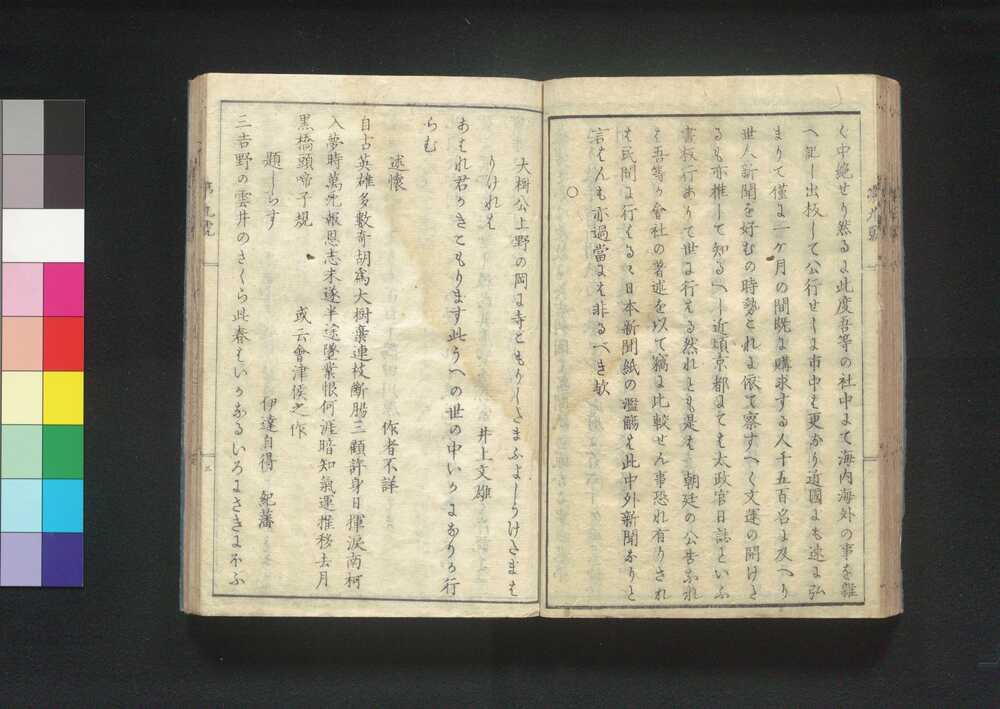 く中絶せり然るに此度吾等の社中にて海内海外の事を雑
へ記し出板して公行せしに市中は更なり遠国にも速に弘
まりて僅に一ケ月の間既に購求する人千五百名に及へり
世人新聞を好むの時勢これに依て察すへく文運の開けた
るも亦推して知るへし近頃京都にても太政官日誌といふ
書板行ありて世に行はる然れとも是は　朝廷の公告なれ
は吾等か會社の著述を以て竊に比較せん事恐れ有りされ
は民間に行はるゝ日本新聞紙の濫觴は此中外新聞なりと
言はんも亦過當には非るべき歟
○
大樹公上野の岡に寺こもりしたまふよしうけたまは
りけれは
井上文雄
あはれ君かきこもります此うへの世の中いかになりか行
らむ
述懐
作者不詳
自古英雄多數奇胡爲大樹棄連枝断腸三顧許身日揮涙南柯
入夢時萬死報恩志未遂半途墜業恨何涯暗知氣運推移去月
黒橋頭啼子規
或云會津侯之作
題しらす
伊達自得　紀藩
三吉野の雲井のさくら此春はいかなるいろにさきにほふ
第九號
三